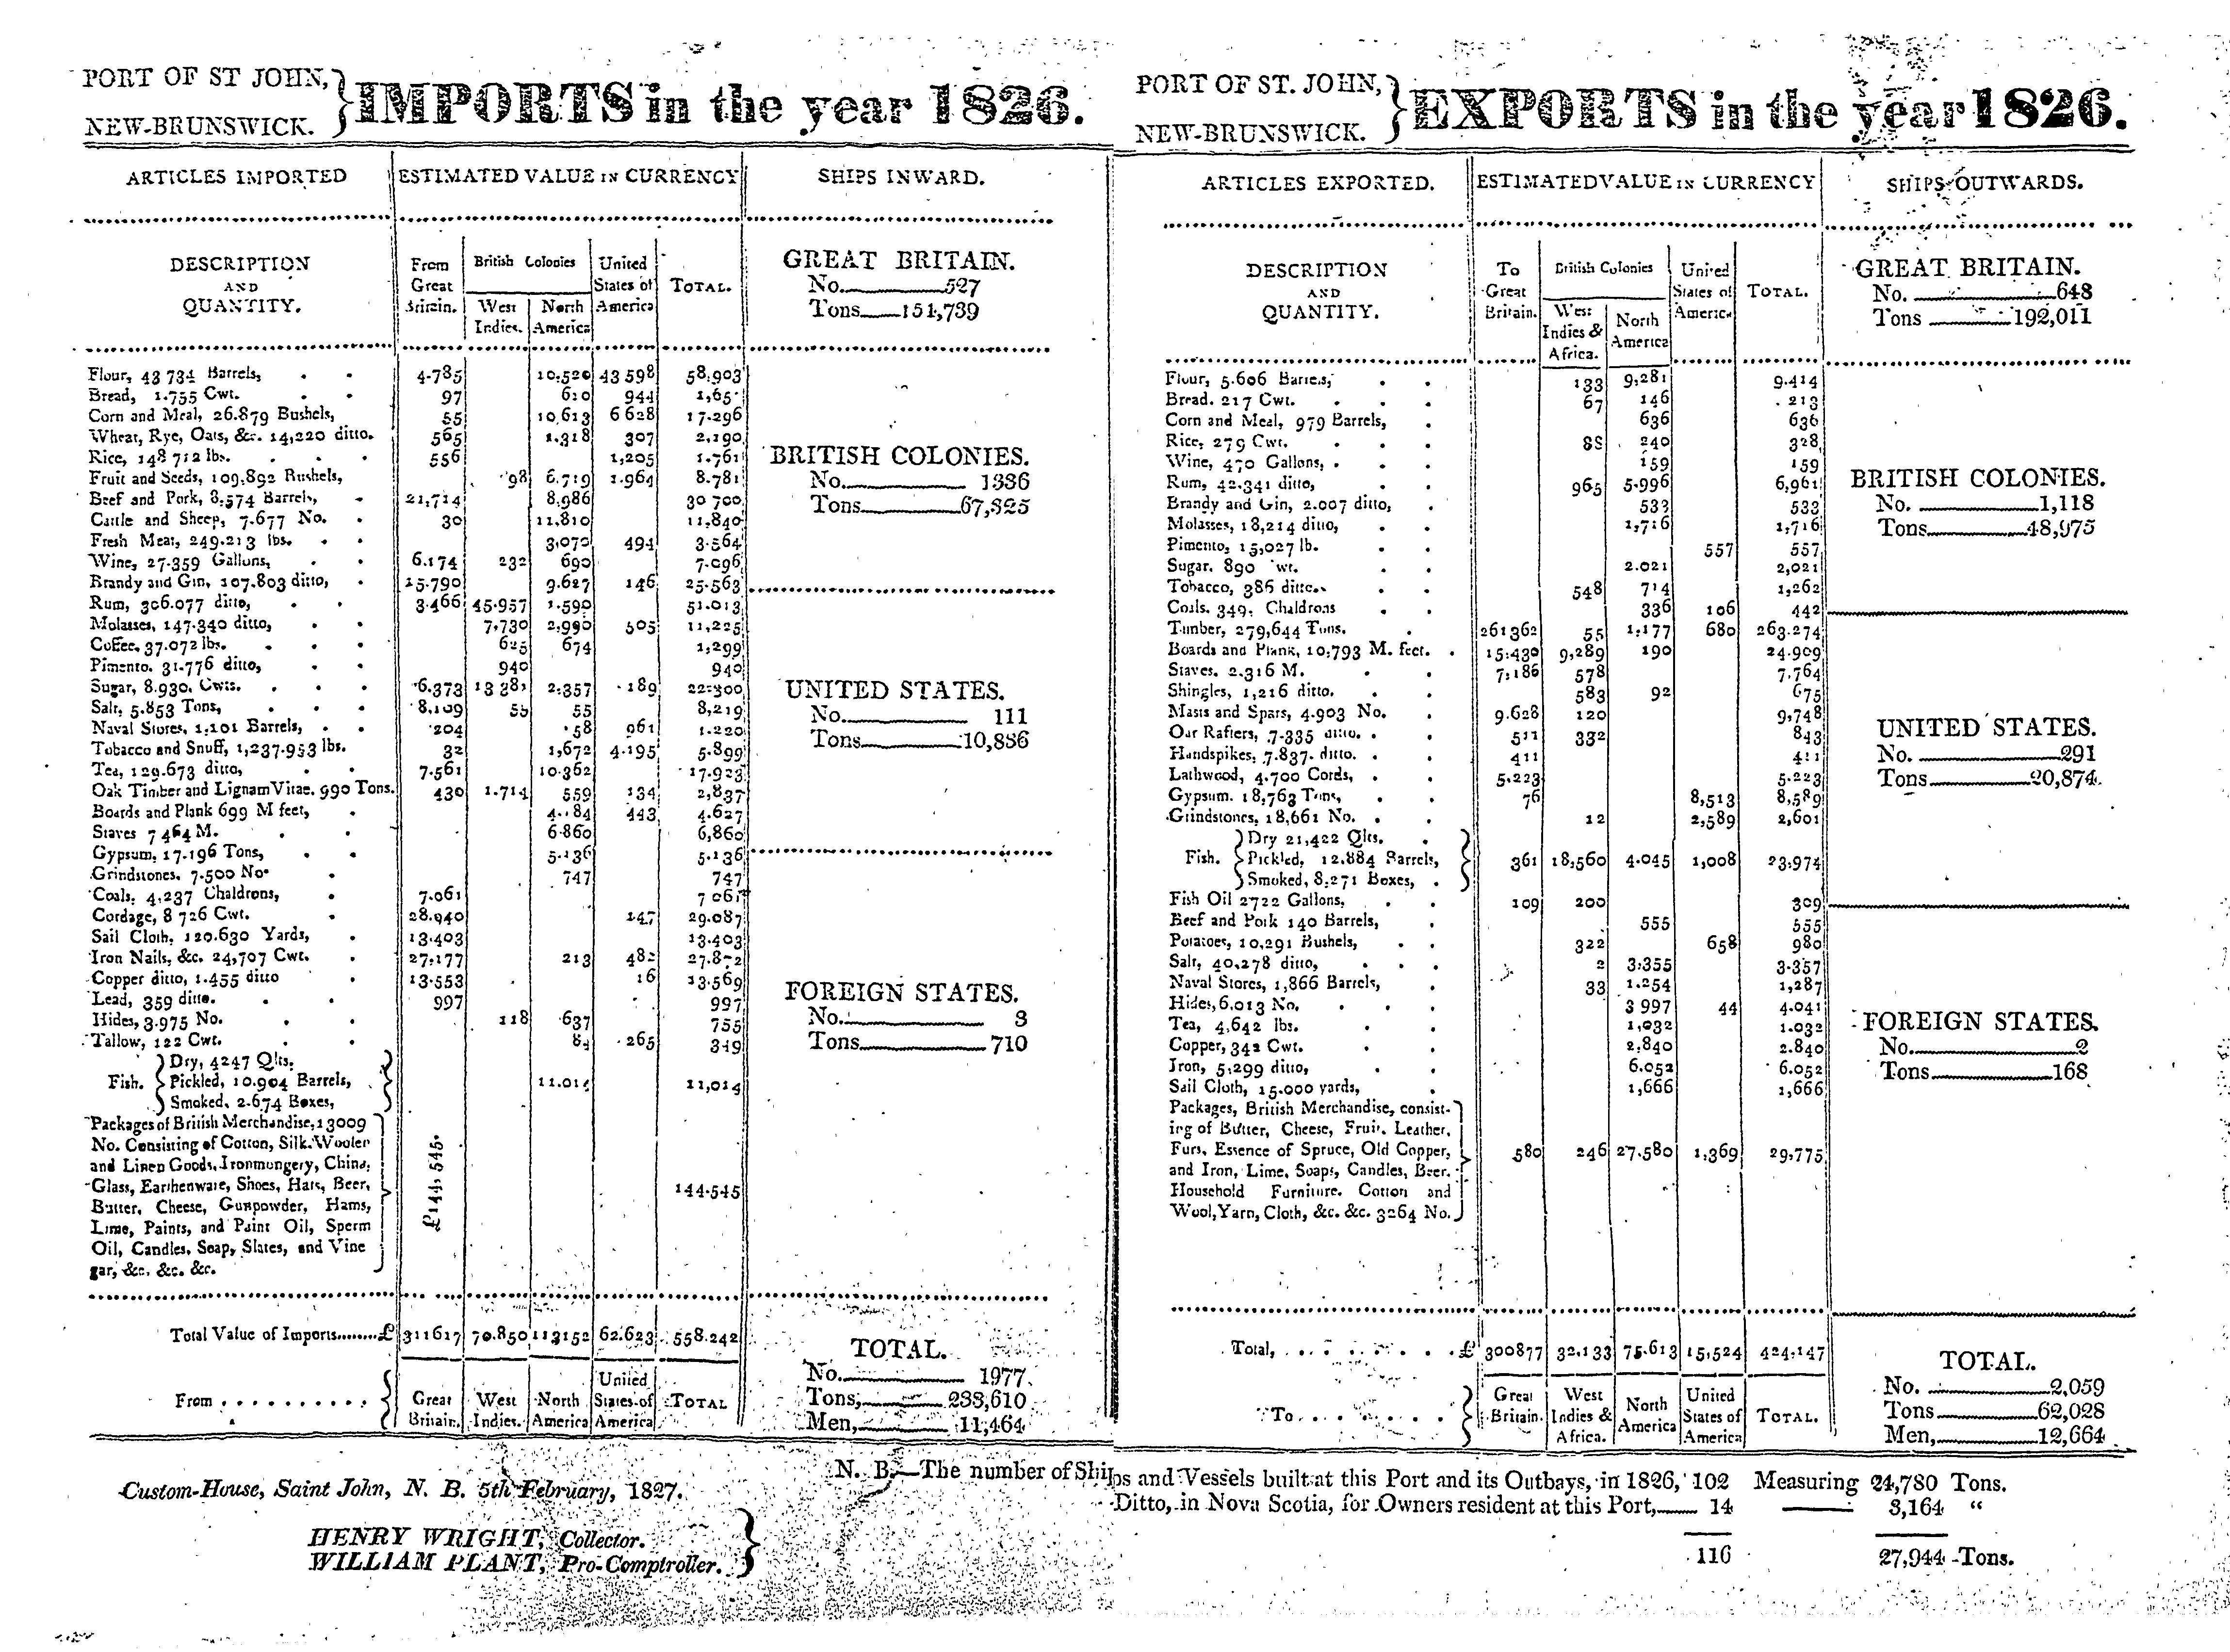 PORT OF ST JOHN,
NEW-BRUNSWICK.
IMPORTS in the year 1826.
ARTICLES IMPORTED ESTIMATED VALUE IN CURRENCY SHIPS INWARD.
DESCRIPTION AND QUANTITY. From Great Britain. British Colonies West Indies. North America United States of America TOTAL.
Flour, 43 734 Barrels, 4.785 10.520 43 598 58,903
Bread, 1.755 Cwt. 97 610 944
Corn and Meal, 26.879 Bushels, 55 10,613 6 628 17.296
Wheat, Rye, Oats, &c. 14,220 ditto. 565 1.318 307 2,190
Rice, 148 712 lbs. 556 1,205 1.761
Fruit and Seeds, 109,892 Bushels, 98 6.719 1.964 8.781
Beef and Pork, 8.574 Barrels, 21,714 8,986 30 700
Cattle and Sheep, 7.677 No. 30 11,810 11,840
Fresh Meat, 249.213 lbs. 3,070 494 3.564
Wine, 27.359 Gallons, 6.174 232 690 7.096
Brandy and Gin, 107.803 ditto, 15.790 9.627 146 25.563
Rum, 306.077 ditto, 3.466 45.957 1.590 51.013
Molasses, 147.340 ditto, 7,730 2,990 505 11,225
Coffee, 37.072 lbs. 625 674 1,299
Pimento. 31.776 ditto, 940 940
Sugar, 8.930. Cwts. 6.373 13 381 2.357 189 22.300
Salt, 5.853 Tons, 8,109 55 55 8,219
Naval Stores, 1.101 Barrels, 204 58 961 1.220
Tobacco and Snuff, 1,237.953 lbs. 32 1,672 4.195 5.899
Tea, 129.673 ditto, 7.561 10.362 17.923
Oak Timber and Lignam Vitae. 990 Tons. 430 1.714 559 134 2,837
Boards and Plank 699 M feet, 4.184 443 4.627
Staves 7 464 M. 6.860 6,860
Gypsum, 17.196 Tons, 5.136 5.136
Grindstones, 7.500 No. 747 747
Coals, 4,237 Chaldrons, 7.061 7 061
Cordage, 8 726 Cwt. 28.940 147 29.087
Sail Cloth, 120.630 Yards, 13.403 13.403
Iron Nails, &c. 24,707 Cwt. 27.177 213 482 27.872
Copper ditto, 1.455 ditto 13.553 16 13.569
Lead, 359 ditto. 997 997
Hides, 3.975 No. 118 637 755
Tallow, 122 Cwt. 84 265 349
Dry, 4247 Qlts.
Fish. Pickled, 10.904 Barrels, 11.014 11,014
Smoked, 2.674 Boxes,
Packages of British Merchandise, 13009
No. Consisting of Cotton, Silk. Woolen
and Linen Goods, Ironmongery, China,
Glass, Earthenware, Shoes, Hats, Beer, £144,545. 144.545
Butter, Cheese, Gunpowder, Hams,
Lime, Paints, and Paint Oil, Sperm
Oil, Candles, Soap, Slates, and Vine
gar, &c. &c. &c.
Total Value of Imports........£ 311617 70.850 113152 62.623 558.242
From .......... Great Britain. West Indies. North America United States of America TOTAL
GREAT BRITAIN.
No. 527
Tons 151,739
BRITISH COLONIES.
No. 1336
Tons 67,325
UNITED STATES.
No. 111
Tons 10,836
FOREIGN STATES.
No. 3
Tons 710
TOTAL.
No. 1977
Tons, 233,610
Men, 11,464
PORT OF ST. JOHN,
NEW-BRUNSWICK.
EXPORTS in the year 1826.
ARTICLES EXPORTED. ESTIMATED VALUE IN CURRENCY SHIPS OUTWARDS.
DESCRIPTION AND QUANTITY. To Great Britain. British Colonies West Indies & Africa. North America United States of America TOTAL.
Flour, 5.606 Barrels, 133 9,281 9.414
Bread. 217 Cwt. 67 146 213
Corn and Meal, 979 Barrels, 636 636
Rice, 279 Cwt. 88 240 328
Wine, 470 Gallons, 159 159
Rum, 42.341 ditto, 965 5.996 6,961
Brandy and Gin, 2.007 ditto, 533 533
Molasses, 18,214 ditto, 1,716 1,716
Pimento, 15,027 lb. 557 557
Sugar. 890 wt. 2.021 2,021
Tobacco, 386 ditto. 548 714 1,262
Coals. 349. Chaldrons 336 106 442
Timber, 279,644 Tons. 261362 55 1,177 680 263.274
Boards and Plank, 10,793 M. feet. 15.430 9,289 190 24.909
Staves. 2.316 M. 7,186 578 7.764
Shingles, 1,216 ditto. 583 92 675
Masts and Spars, 4.903 No. 9.628 120 9,748
Oar Rafters, 7.335 ditto. 511 332 843
Handspikes, 7.837. ditto. 411 411
Lathwood, 4.700 Cords, 5.223 5.223
Gypsum. 18,763 Tons, 76 8,513 8,589
Grindstones, 18,661 No. 12 2,589 2,601
Dry 21,422 Qlts.
Fish. Pickled, 12.884 Barrels, 361 18,560 4.045 1,008 23.974
Smoked, 8.271 Boxes,
Fish Oil 2722 Gallons, 109 200 309
Beef and Pork 140 Barrels, 555 555
Potatoes, 10,291 Bushels, 322 658 980
Salt, 40,278 ditto, 2 3.355 3.357
Naval Stores, 1,866 Barrels, 33 1.254 1,287
Hides, 6.013 No. 3 997 44 4.041
Tea, 4,642 lbs. 1,032 1.032
Copper, 342 Cwt. 2.840 2.840
Iron, 5,299 ditto, 6.052 6.052
Sail Cloth, 15.000 yards, 1,666 1,666
Packages, British Merchandise, consist-
ing of Butter, Cheese, Fruit, Leather,
Furs, Essence of Spruce, Old Copper, 580 246 27.580 1,369 29,775
and Iron, Lime, Soaps, Candles, Beer.
Household Furniture. Cotton and
Wool, Yarn, Cloth, &c. &c. 3264 No.
Total, £ 300877 32.133 75.613 15,524 424.147
To Great Britain. West Indies & Africa. North America United States of America TOTAL.
GREAT BRITAIN.
No. 648
Tons 192,011
BRITISH COLONIES.
No. 1,118
Tons 48,975
UNITED STATES.
No. 291
Tons 20,874
FOREIGN STATES.
No. 2
Tons 168
TOTAL.
No. 2,059
Tons 62,028
Men, 12,664
Custom-House, Saint John, N. B. 5th February, 1827.
HENRY WRIGHT, Collector.
WILLIAM PLANT, Pro-Comptroller.
N. B.—The number of Ships and Vessels built at this Port and its Outbays, in 1826, 102 Measuring 24,780 Tons.
Ditto, in Nova Scotia, for Owners resident at this Port, 14 —— 3,164 “
116 27,944 Tons.